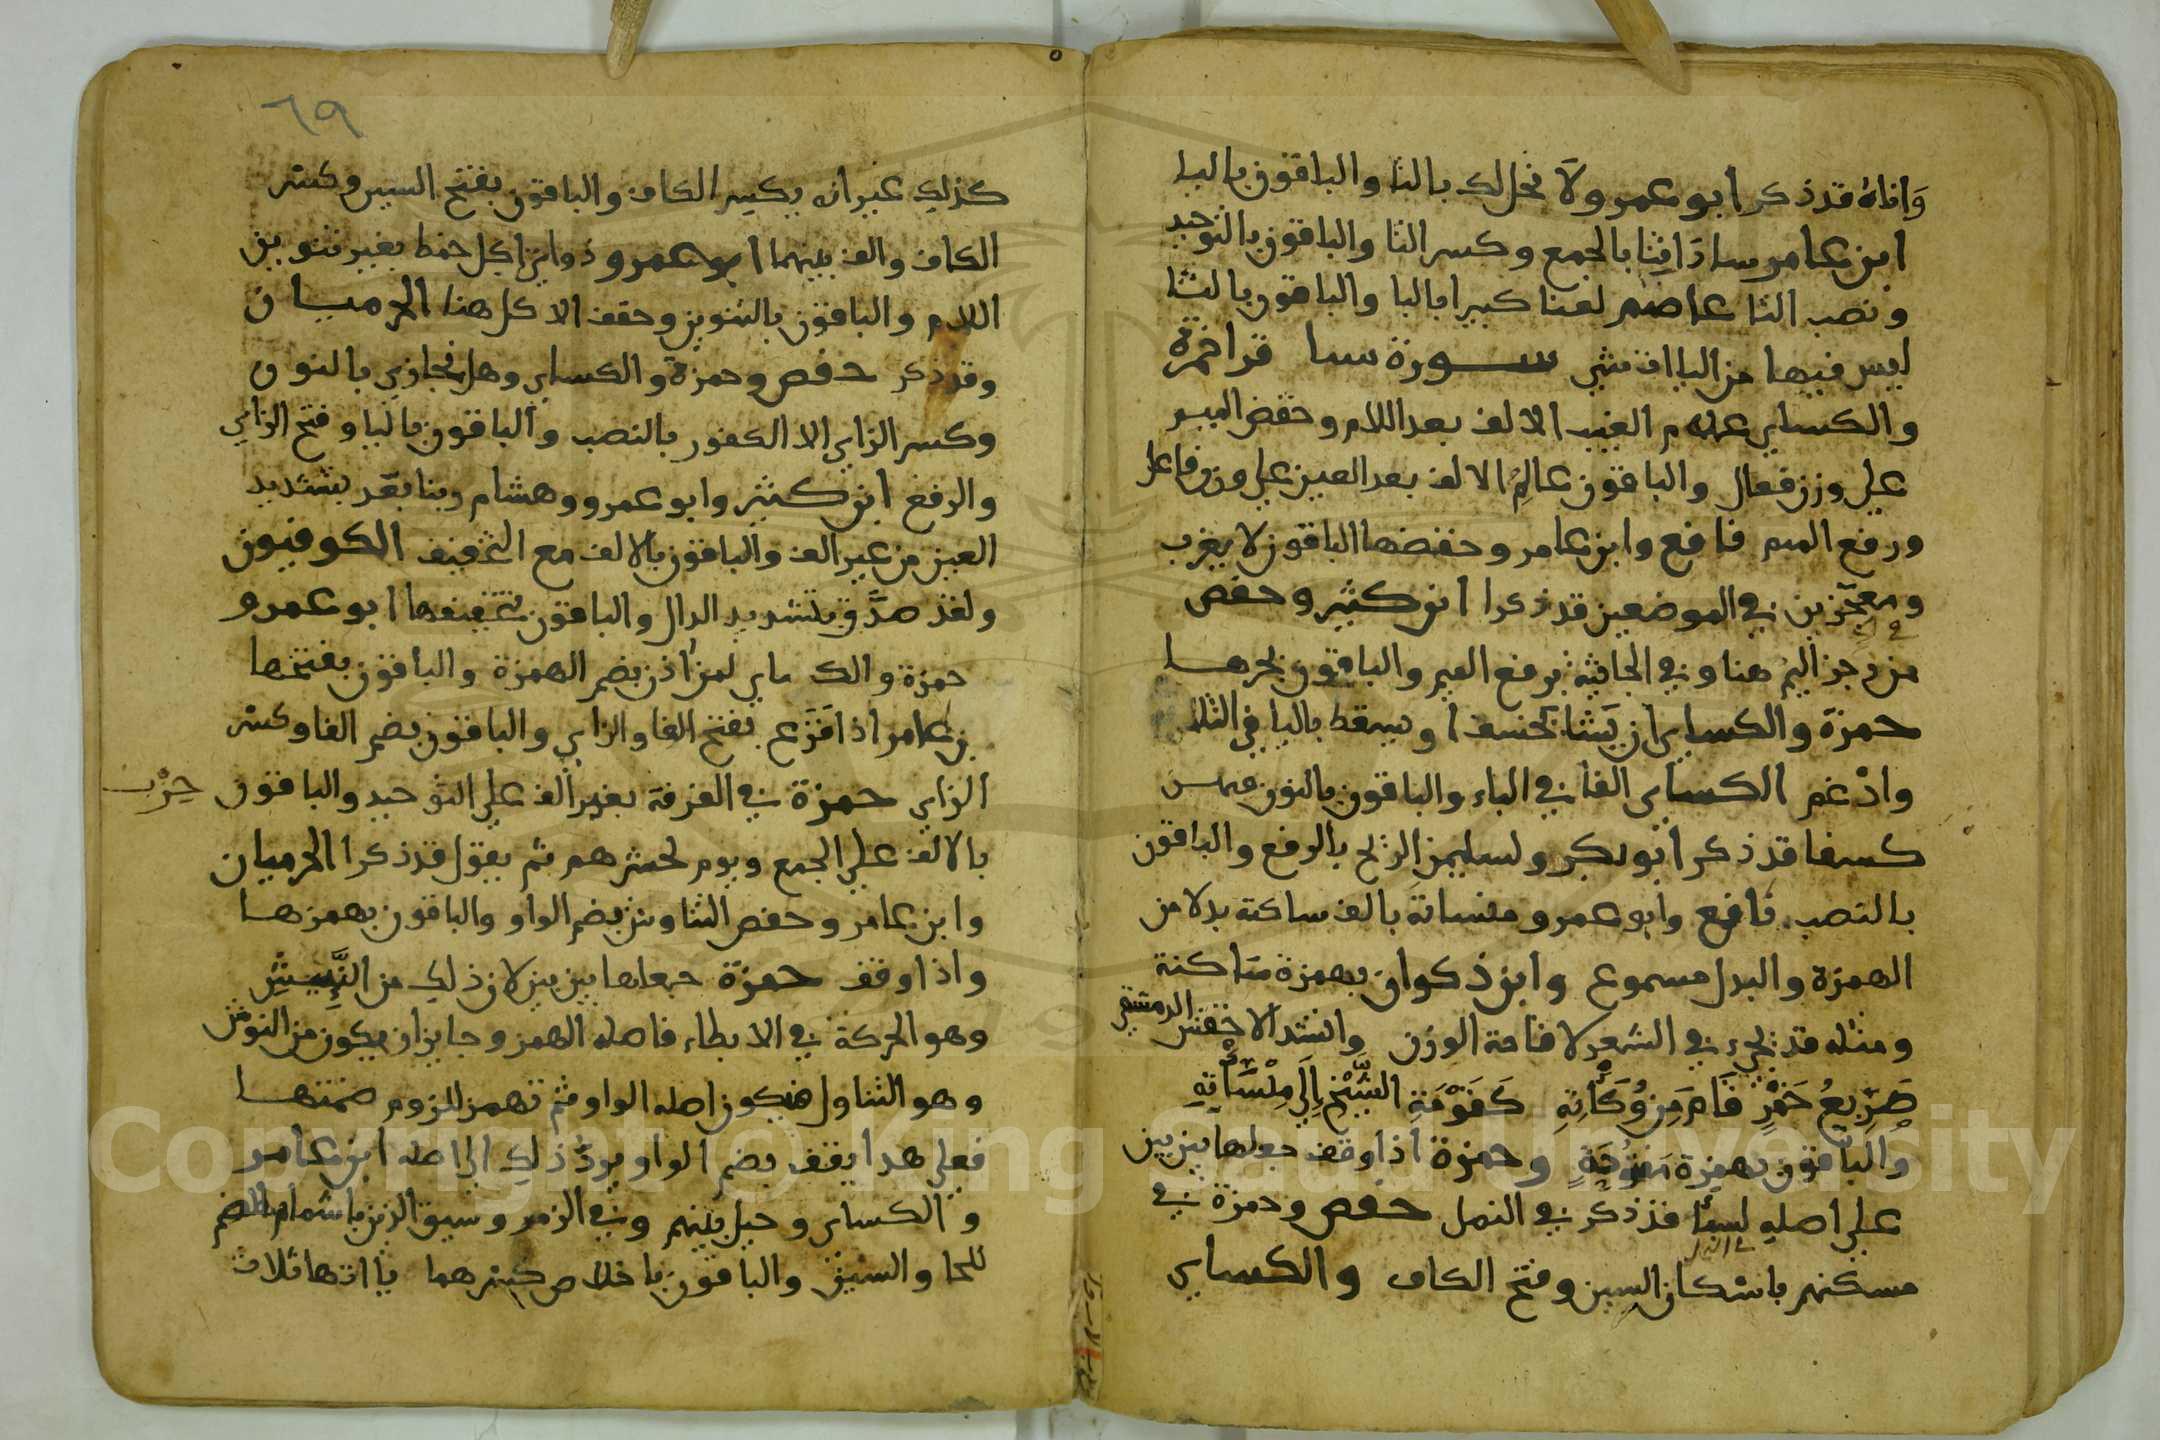 وَاناهُ قد ذكر ابو عمرو ولا تحل لك بالتا والباقون باليا
ابن عامر سادَاتِنا بالجمع وكسر التا والباقون بالتوحيد
ونصب التا عاصم لعنا كبيرا بالبا والباقون بالثا
ليس فيها من الياات شي سورة سبا قرا حمزة
والكساي علام الغيب الالف بعد اللام وخفض الميم
علي وزن فعال والباقون عالم الالف بعد العين علي وزن فاعل
ورفع الميم نافع وابن عامر وخفضها الباقون لا يعزب
ومعجّزين في الموضعين قد ذكرا ابن كثير وحفص
من رجز اليمٌ هنا وفي الجاثية برفع الميم والباقون بجرها
حمزة والكساي ان يَشا يخسف او يسقط باليا في الثلاثة
وادْغم الكساي الفا في الباء والباقون بالنون فيهن
كسفا قد ذكر ابو بكر ولسليمن الريح بالرفع والباقون
بالنصب نافع وابو عمرو منساته بالف ساكنة بدلا من
الهمزة والبدل مسموع وابن ذكوان بهمزة ساكنة
ومثله قد يجيء في الشعر لاقامة الوزن وانشد الاخفش الدمشقي
صَرِيعُ خَمْرٍ قَامَ مِن وُكَأتِهِ كَقَوْمَةِ الشَّيْخِ إِلَي مِنْسَأْتِهِ
والباقون بهمزة مفتوحَةٍ وحمزة اذا وقف جعلها بين بين
علي اصله لسبأ قد ذكر في النمل حفص وحمزة في
مسكنهم باسْكان السين وفتح الكاف والكساي
٦٩
كذلك غير انه يكسر الكاف والباقون بفتح السين وكسر
الكاف والف بينهما ابو عمرو ذواتي اكل خمط بغير تنوين
اللام والباقون بالتنوين وخفف الاكل هنا الحرميان
وقد ذكر حفص وحمزة والكساي وهل نجازي بالنون
وكسر الزاي الا الكفور بالنصب والباقون باليا وفتح الزاي
والرفع ابن كثير وابو عمرو وهشام ربنا بعّد بتشديد
العين من غير الف والباقون بالالف مع التخفيف الكوفيون
ولقد صدَّق بتشديد الدال والباقون بتخفيفها ابو عمرو
حمزة والكساي لمن اُذن بضم الهمزة والباقون بفتحها
بن عامر اذا فَزَع بفتح الفا والزاي والباقون بضم الفا وكسر
الزاي حمزة في الغرفة بغير الف علي التوحيد والباقون
حِزْب
بالالف علي الجمع ويوم نحشرهم ثم يقول قد ذكرا الحرميان
وابن عامر وحفص التناوش بضم الواو والباقون بهمزها
واذا وقف حمزة جعلها بين بين لان ذلك من النَّئِيشِ
وهو الحركة في الابطاء فاصله الهمز وجايز ان يكون من النوش
وهو التناول فيكون اصله الواو ثم تهمز للزوم ضمتها
فعلي هذا يقف بضم الواو يردّ ذلك الي اصله ابن عامر
والكساي وحيل بينهم وفي الزمر وسيق الذين باشمام الضم
للحا والسين والباقون باخلاص كسرهما يااتها ثلاث